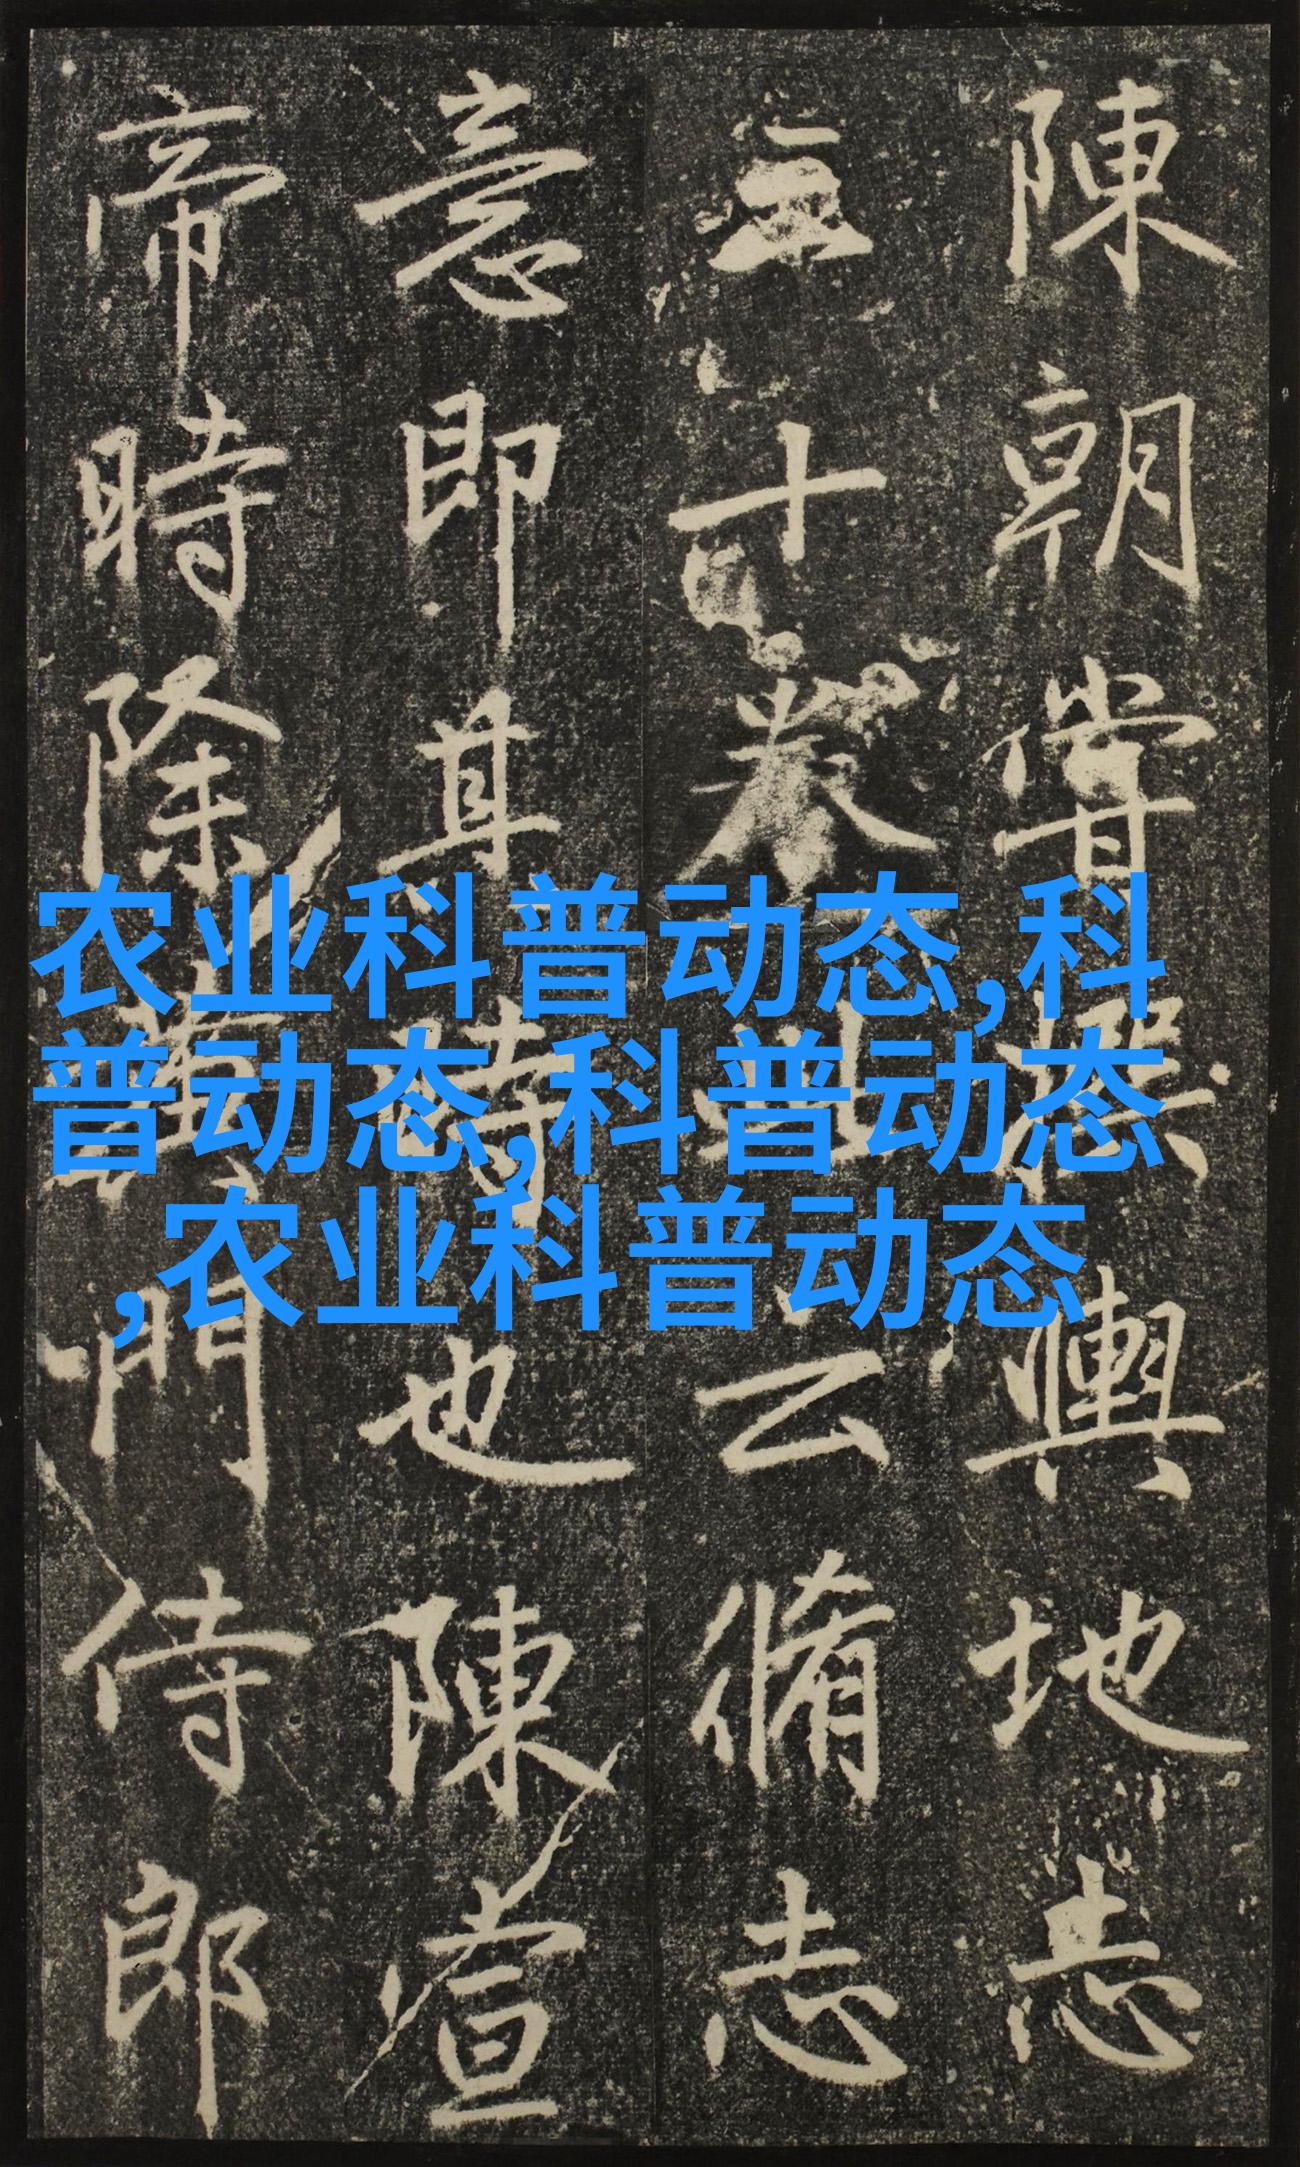 陳朝嘗撰輿地志
三十卷此云脩志
意即其時也陳宣
帝時除黃門侍郎
农业科普动态,科
普动态,科普动态
,农业科普动态